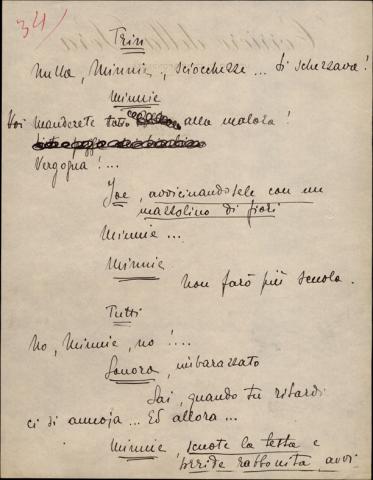 34
Trin
Nulla, Minnie, sciocchezze... Si scherzava!
Minnie
Voi manderete tutto alla malora!
Vergogna!...
Joe, avvicinandosele con un
mazzolino di fiori
Minnie...
Minnie
Non farò più scuola.
Tutti
No, Minnie, no!...
Sonora, imbarazzato
Sai, quando tu ritardi
ci si annoja... Ed allora...
Minnie, scuote la testa e
sorride rabbonita, avvi-